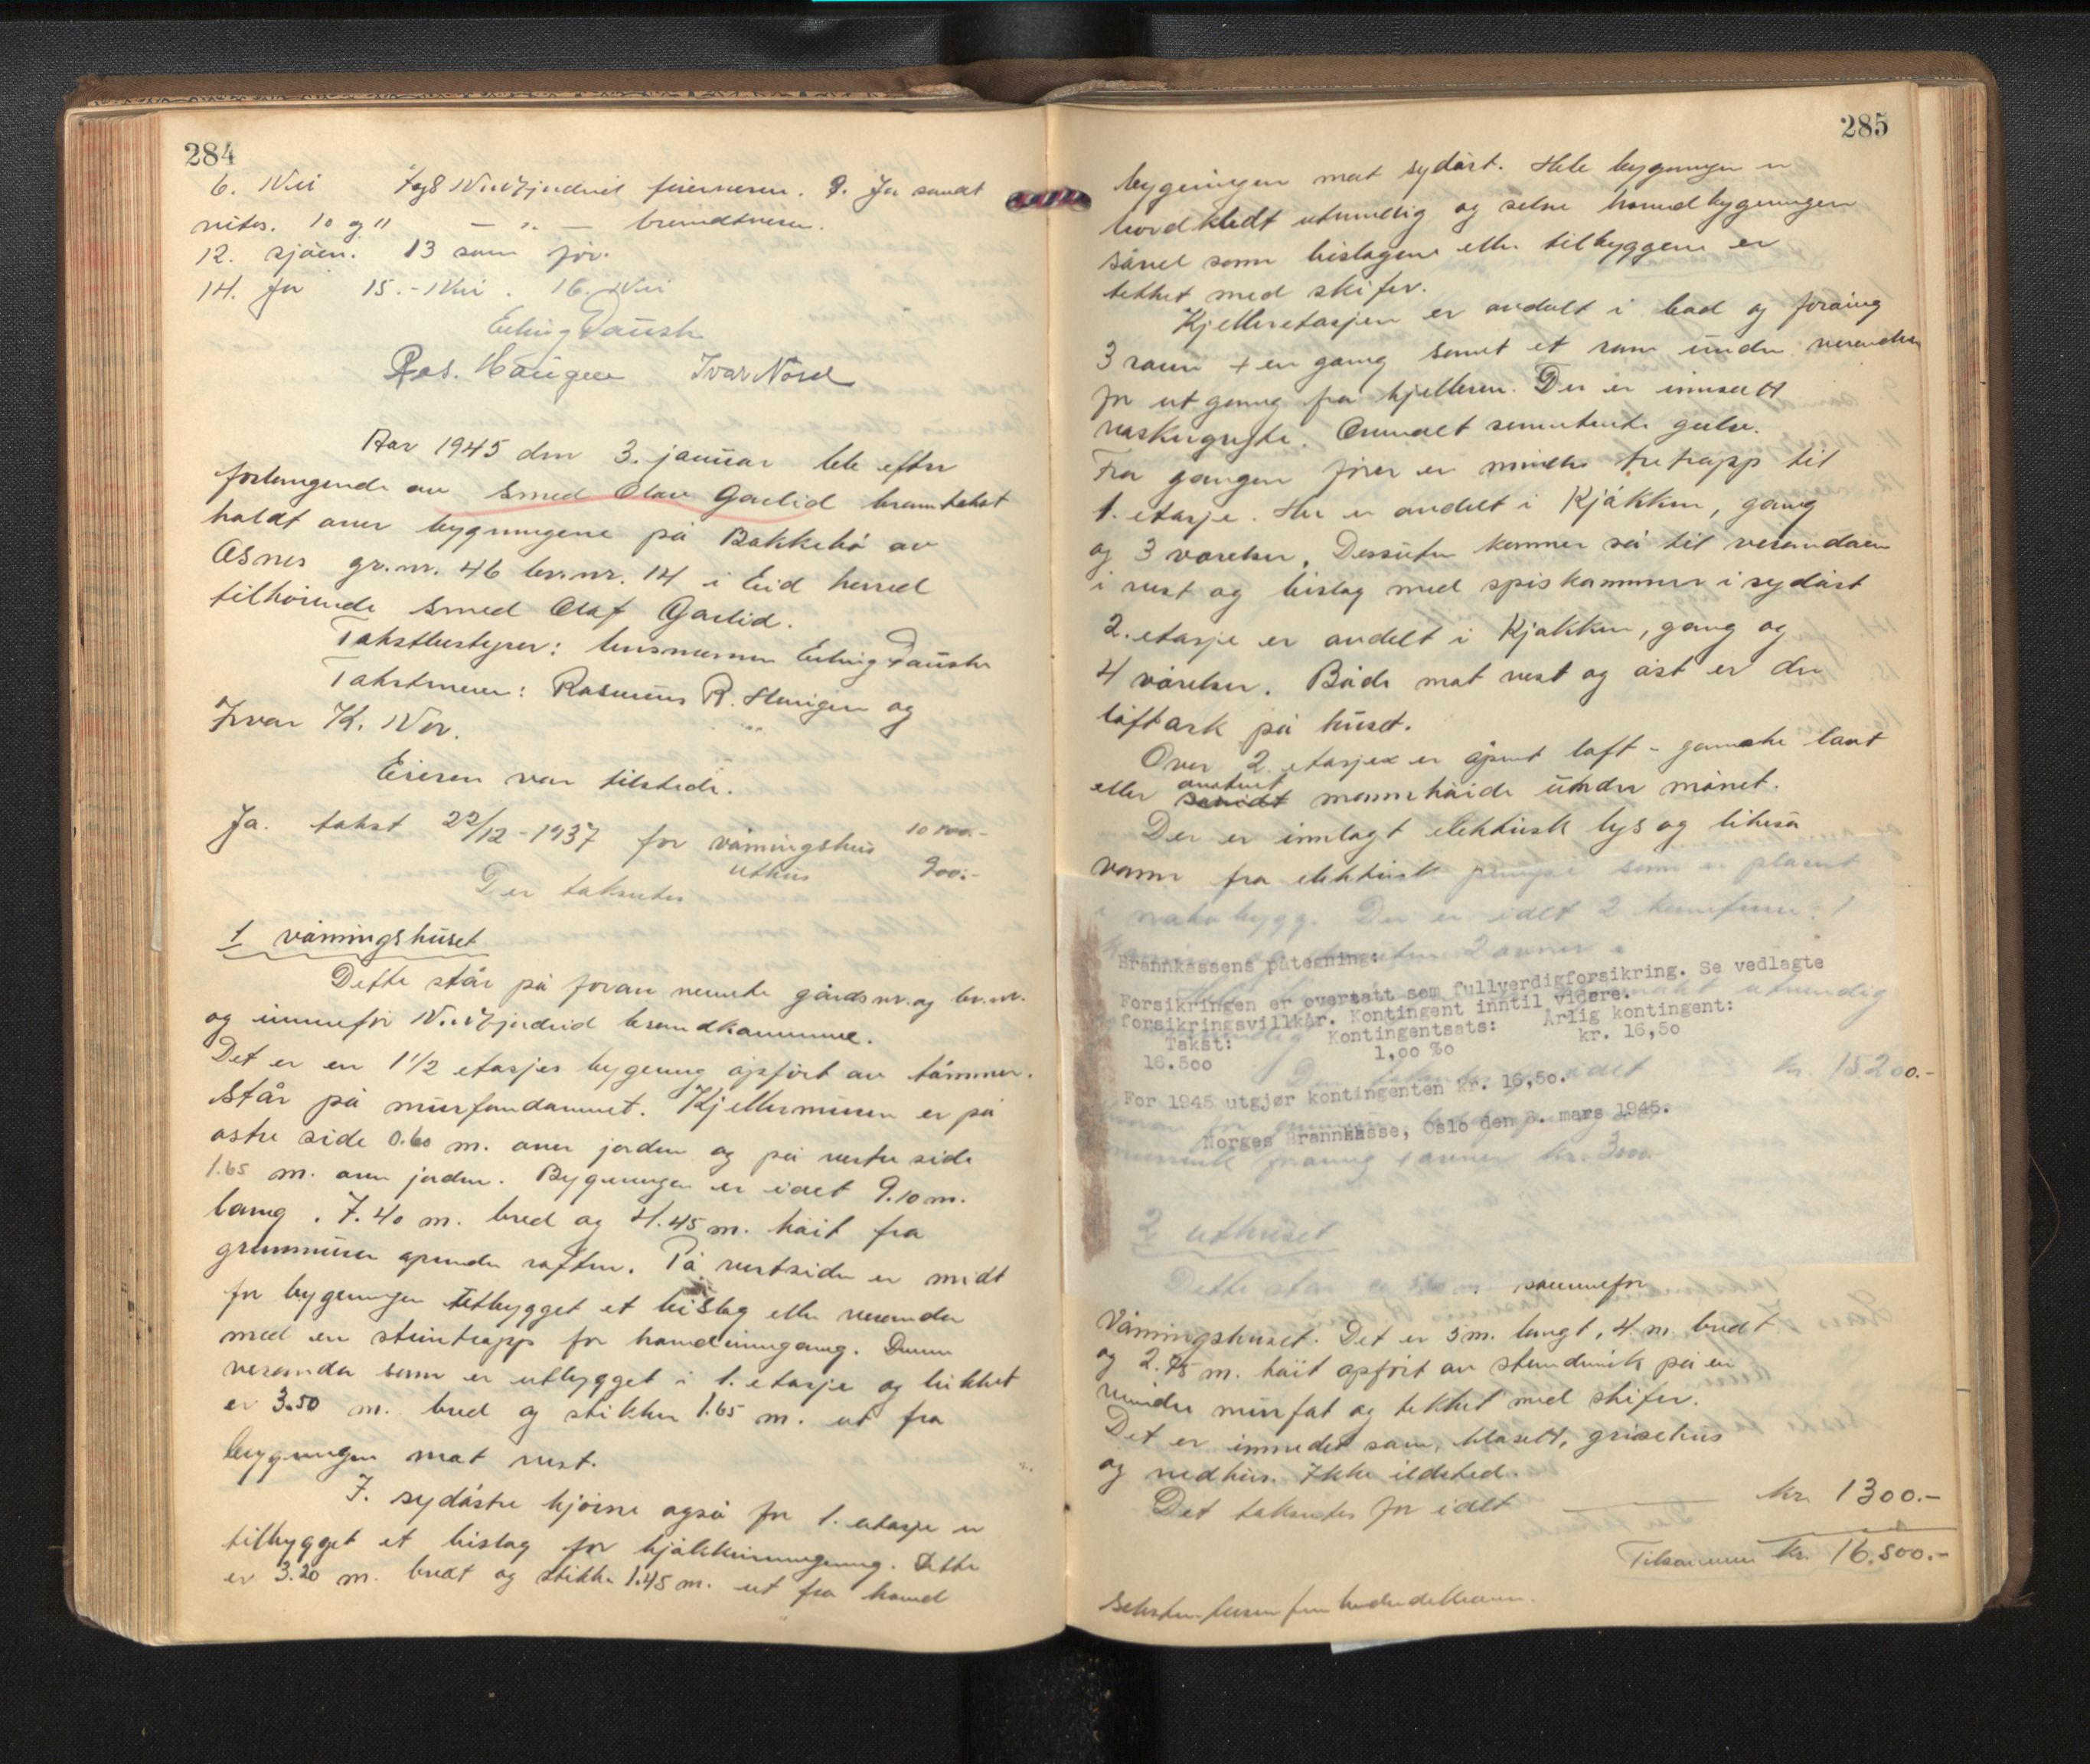 284
6. Nei 7 og 8 Nordfjordeid feiervesen. 9. Ja sandt
vites. 10 og 11 — " — brandtvesen.
12. sjøen. 13 som før.
14. Ja 15. - Nei. 16. Nei
Erling Daush
Ras. Haugen Ivar Nord
Aar 1945 den 3. januar ble efter
forlangende av smed Olav Gaelid branntakst
holdt over bygningene på Bakkebø av
Osnes gr.nr. 46 br.nr. 14 i Eid herred
tilhörende smed Olaf Gaelid.
Takstbestyrer: lensmannen Erling Daush
Takstmenn: Rasmus R. Haugen og
Ivar K. Nor.
Eieren var tilstede.
Ja. takst 22/12-1937 for våningshus 10 100.-
uthus 900.-
Der takseres
1 våningshuset
Dette står på foran nevnte gårds nr. og br.nr.
og innenfor Nordfjordeid brandkommune.
Det er en 1 1/2 etasjes bygning opført av tømmer.
Står på murfundament. Kjellermuren er på
østre side 0.60 m. over jorden og på vestre side
1.65 m. over jorden. Bygningen er idet 9.10 m.
lang, 7.40 m. bred og 4.45 m. høit fra
grunnmuren opunder raften. På vestsiden er midt
for bygningen utbygget et bislag eller veranda
med en steintrapp for hovedinngang. Denne
veranda som er utbygget i 1. etasje og lukket
er 3.50 m. bred og stikker 1.65 m. ut fra
bygningen mot vest.
I sydøstre hjørne også for 1. etasje er
tilbygget et bislag for kjøkkeninngang. Dette
er 3.20 m. bredt og stikker 1.45 m. ut fra hoved
285
bygningen mot sydøst. Hele bygningen er
bordkledt utvendig og selve hovedbygningen
såvel som bislagene eller tilbyggene er
tekket med skifer.
Kjelleretasjen er avdelt i bad og forøvrig
3 rom + en gang samt et rom under verandaen
for utgang fra kjelleren. Der er innsatt
vaskegryte. Overalt sementerte gulv.
Fra gangen fører en mindre tretrapp til
1. etasje. Her er avdelt i kjøkken, gang
og 3 værelser. Dessuten kommer så til verandaen
i vest og bislag med spiskammer i sydøst
2. etasje er avdelt i kjøkken, gang og
4 værelser. Både mot vest og øst er der
loftark på huset.
Over 2. etasjen er åpent loft - ganske lavt
eller omtrent mannhøide under mønet.
Der er innlagt elektrisk lys og likeså
vann fra elektrisk pumpe som er plasert
i nabobygg. Der er idet 2
Brannkassens påtegning:
Forsikringen er oversatt som fullverdigforsikring. Se vedlagte
forsikringsvillkår. Kontingent inntil videre.
Takst: Kontingentsats: Årlig kontingent:
16.500 1,00 %o kr. 16,50
kr. 15200.-
For 1945 utgjør kontingenten kr. 16,50.
Norges Brannkasse, Oslo den 8. mars 1945.
2 uthuset
Dette står ca 50 m. sønnenfor
våningshuset. Det er 5 m. langt, 4 m. bredt
og 2.75 m. høit opført av stendverk på en
mindre murfot og tekket med skifer.
Det er innredet som, klosett, grisehus
og vedhus. Ikke ildsted.
Det takseres for idet — kr. 1300.-
Tilsammen kr. 16.500.-